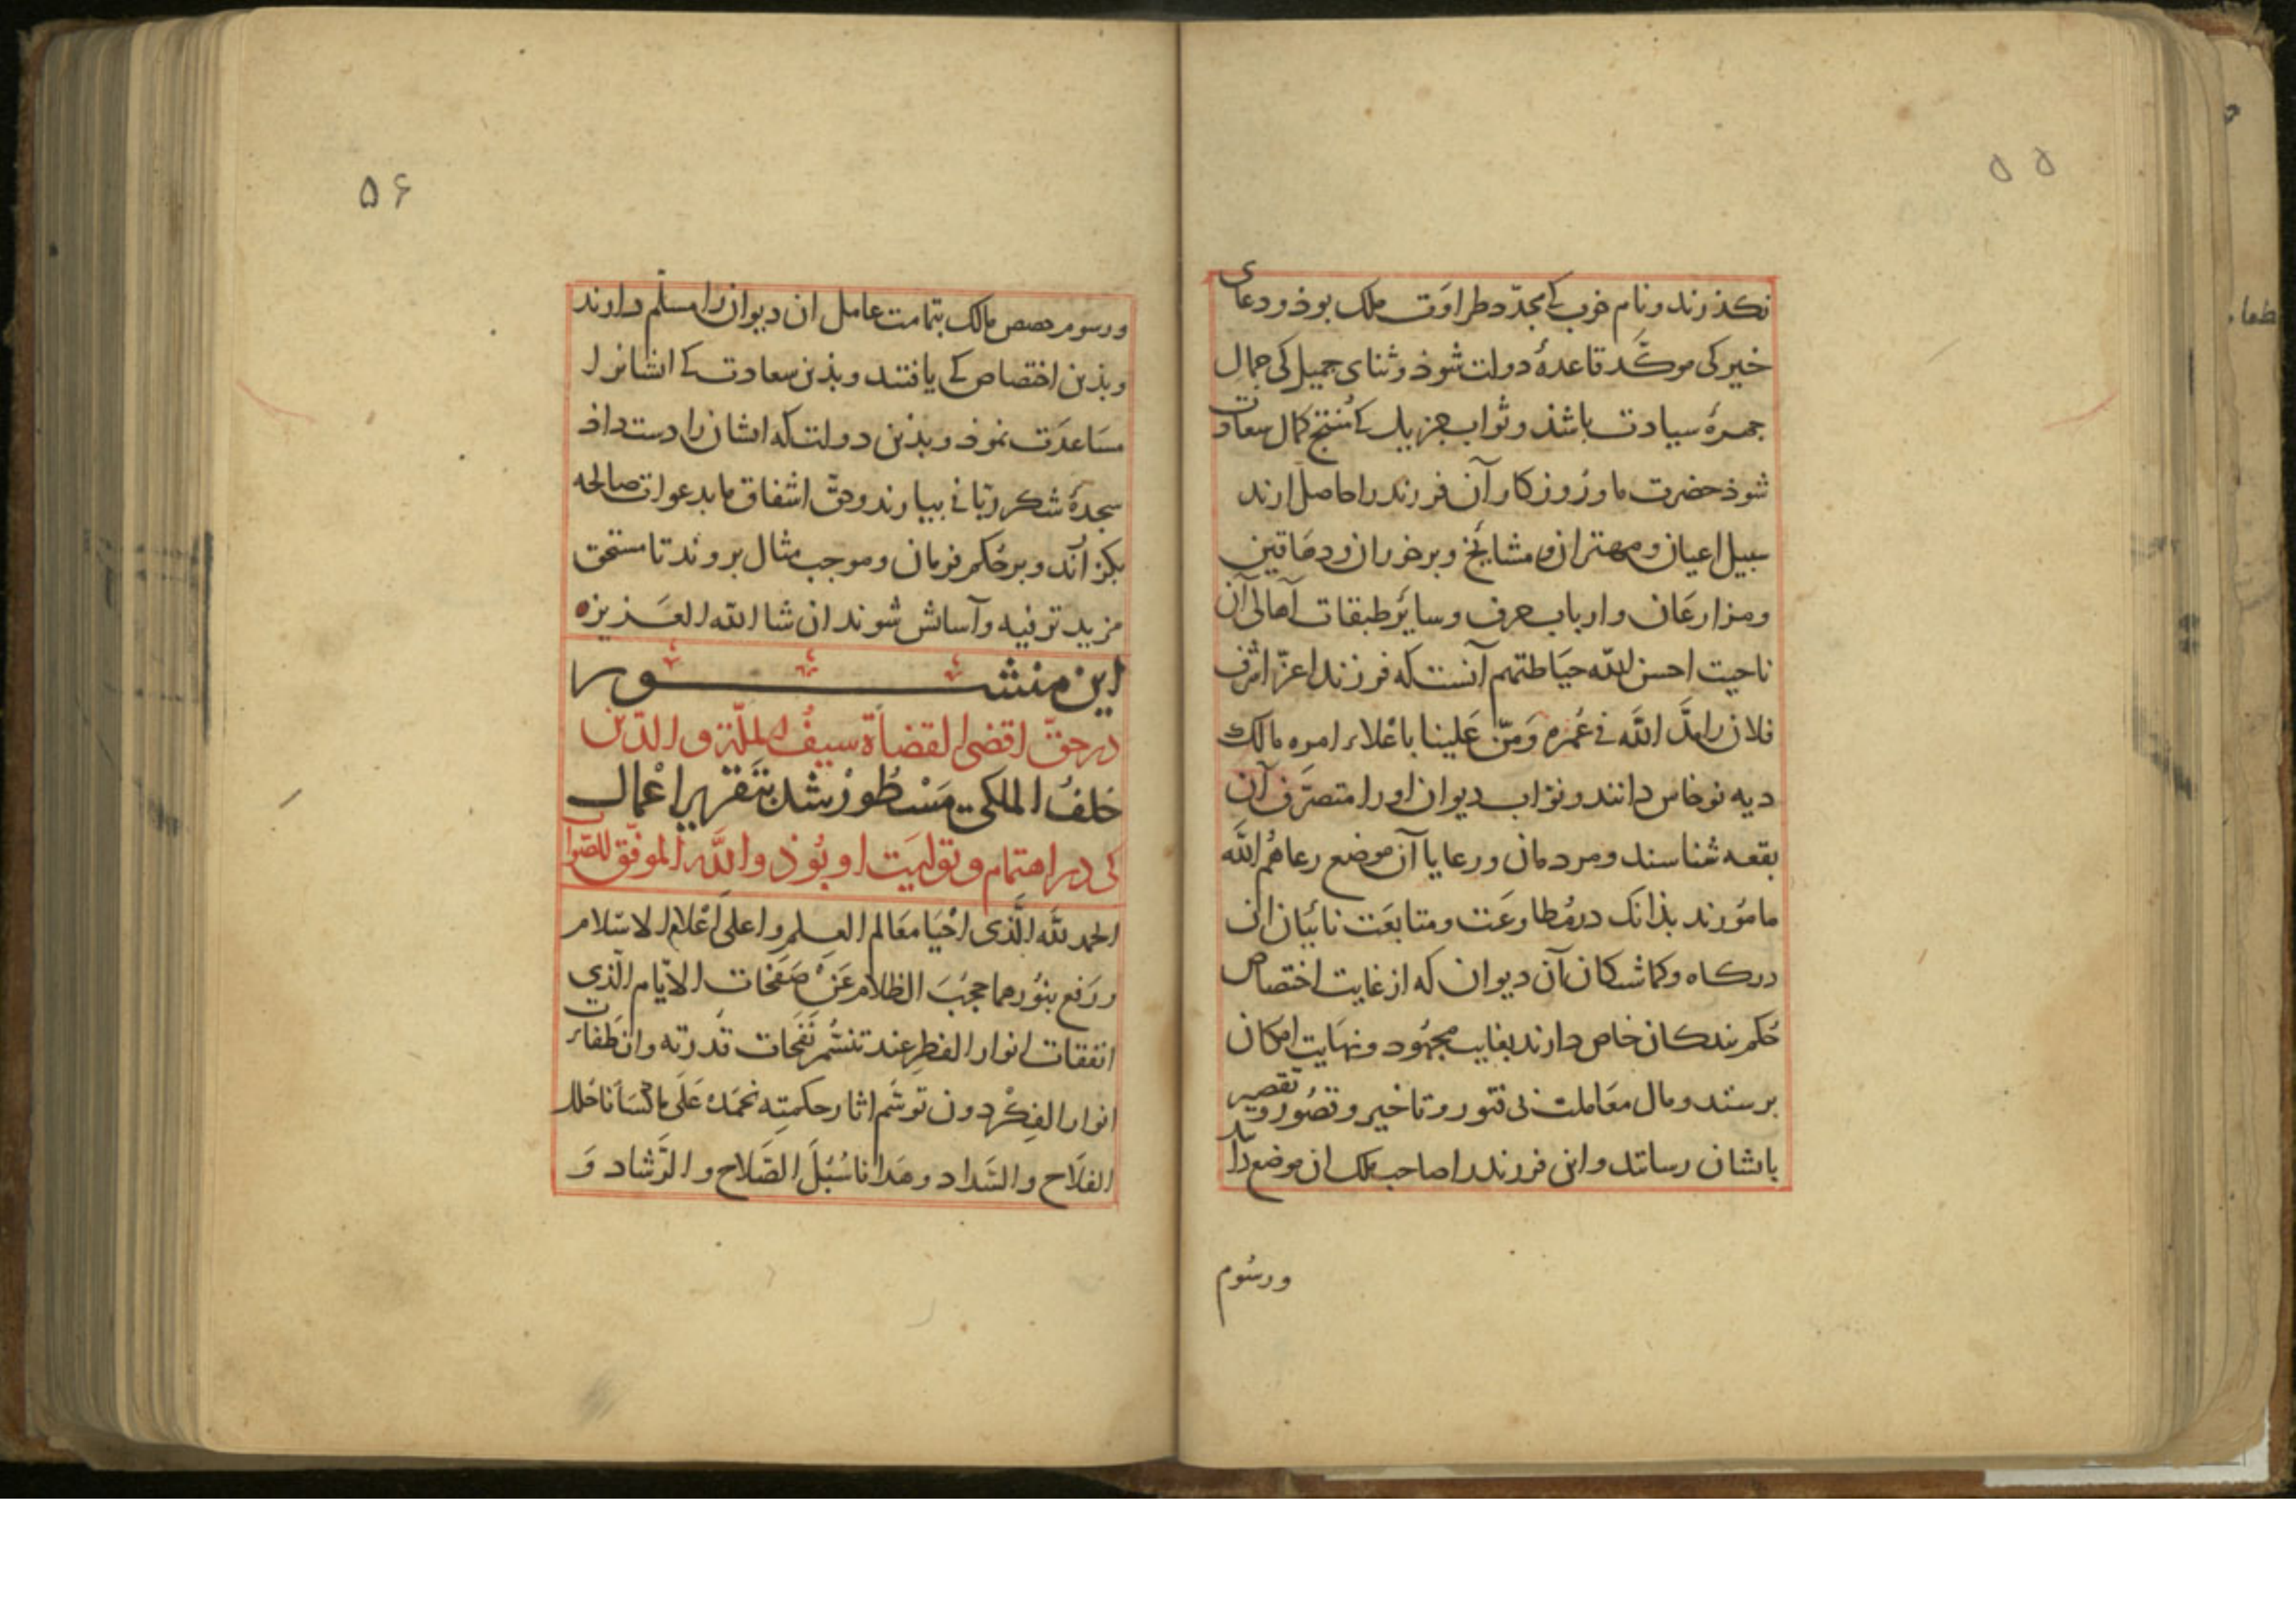 ۵۵
نکذرند و نام خوب کے مجدّد طراوَت ملک بوذ و دعای
خیر کی موکّد قاعدهٔ دولت شوذ و ثنای جمیل کی جمال
جمرهٔ سیادت باشذ و ثواب جزیل کے مُنتج کمال سعادت
شوذ حضرت ما و روزکار آن فرزند را حاصل ارند
سبیل اعیان و مهتران و مشایخ و برخوران و دهاقین
و مزارعَان و ارباب حرف و سایر طبقات اهالی آن
ناحیت احسن اللّه حیَاطتهم آنست که فرزند اعزّ اشرف
فلان را مدَّ اللّه فی عُمره وَ مَنّ عَلینا باعْلاء امره مالک
دیه نوخاس دانند و نوّاب دیوان او را متصرّف آن
بقعه شناسند و مردمان و رعایا آن موضع رعاهُم اللّه
مامُورند بذانک در مُطاوعَت و متابعَت نائبان ان
درکاه و کماشتکان آن دیوان که از غایت اختصاص
حُکم بندکان خاص دارند بغایت مجهُود و نهایت امکان
برسند و مال معَاملت بی فتور و تاخیر و قصُور و تقصیر
بایشان رسانند و این فرزند را صاحب ملک ان موضع داند
و رسُوم
۵۶
و رسوم حصص مالک بتمامت عامل ان دیوان را مسلّم دارند
و بذین اختصاص کے یافتند و بذین سعادت کے ایشانرا
مسَاعدَت نموذ و بذین دولت که ایشان را دست داذ
سجدهٔ شکر ربّانی بیارند و حقّ اشفاق ما بدعوات صالحه
بکزارند و بر حُکم فرمان و موجب مثال بروند تا مستحق
مزید ترفیه و آسایش شوند ان شا اللّه العَزیز
این منشور
در حقّ اقضی القضاة سیفُ الملّة و الدّین
خلفُ الملکی مَسْطُورْ شد بتَقریر اعْمال
کی در اهتمام و تولیَت او بُوذ و اللَّه الموفّق للصّواب
الحمد للّه الَّذی احْیَا مَعَالم العِلم و اعلیَ اعْلامَ الاسْلام
و رَفع بنُورهما حجُبَ الظلام عَنْ صَفحَات الایّام الّذی
انفقات انوار الفطر عند تنسُّم نَفحات قدرته و انطفاءت
انوار الفِکْر دون توسّم اثار حکمتِه نحمَدهُ عَلَی ما کسَانا حُلل
الفلَاح و السَّداد و هَدانا سُبُلَ الصَّلاح و الرَّشاد وَ